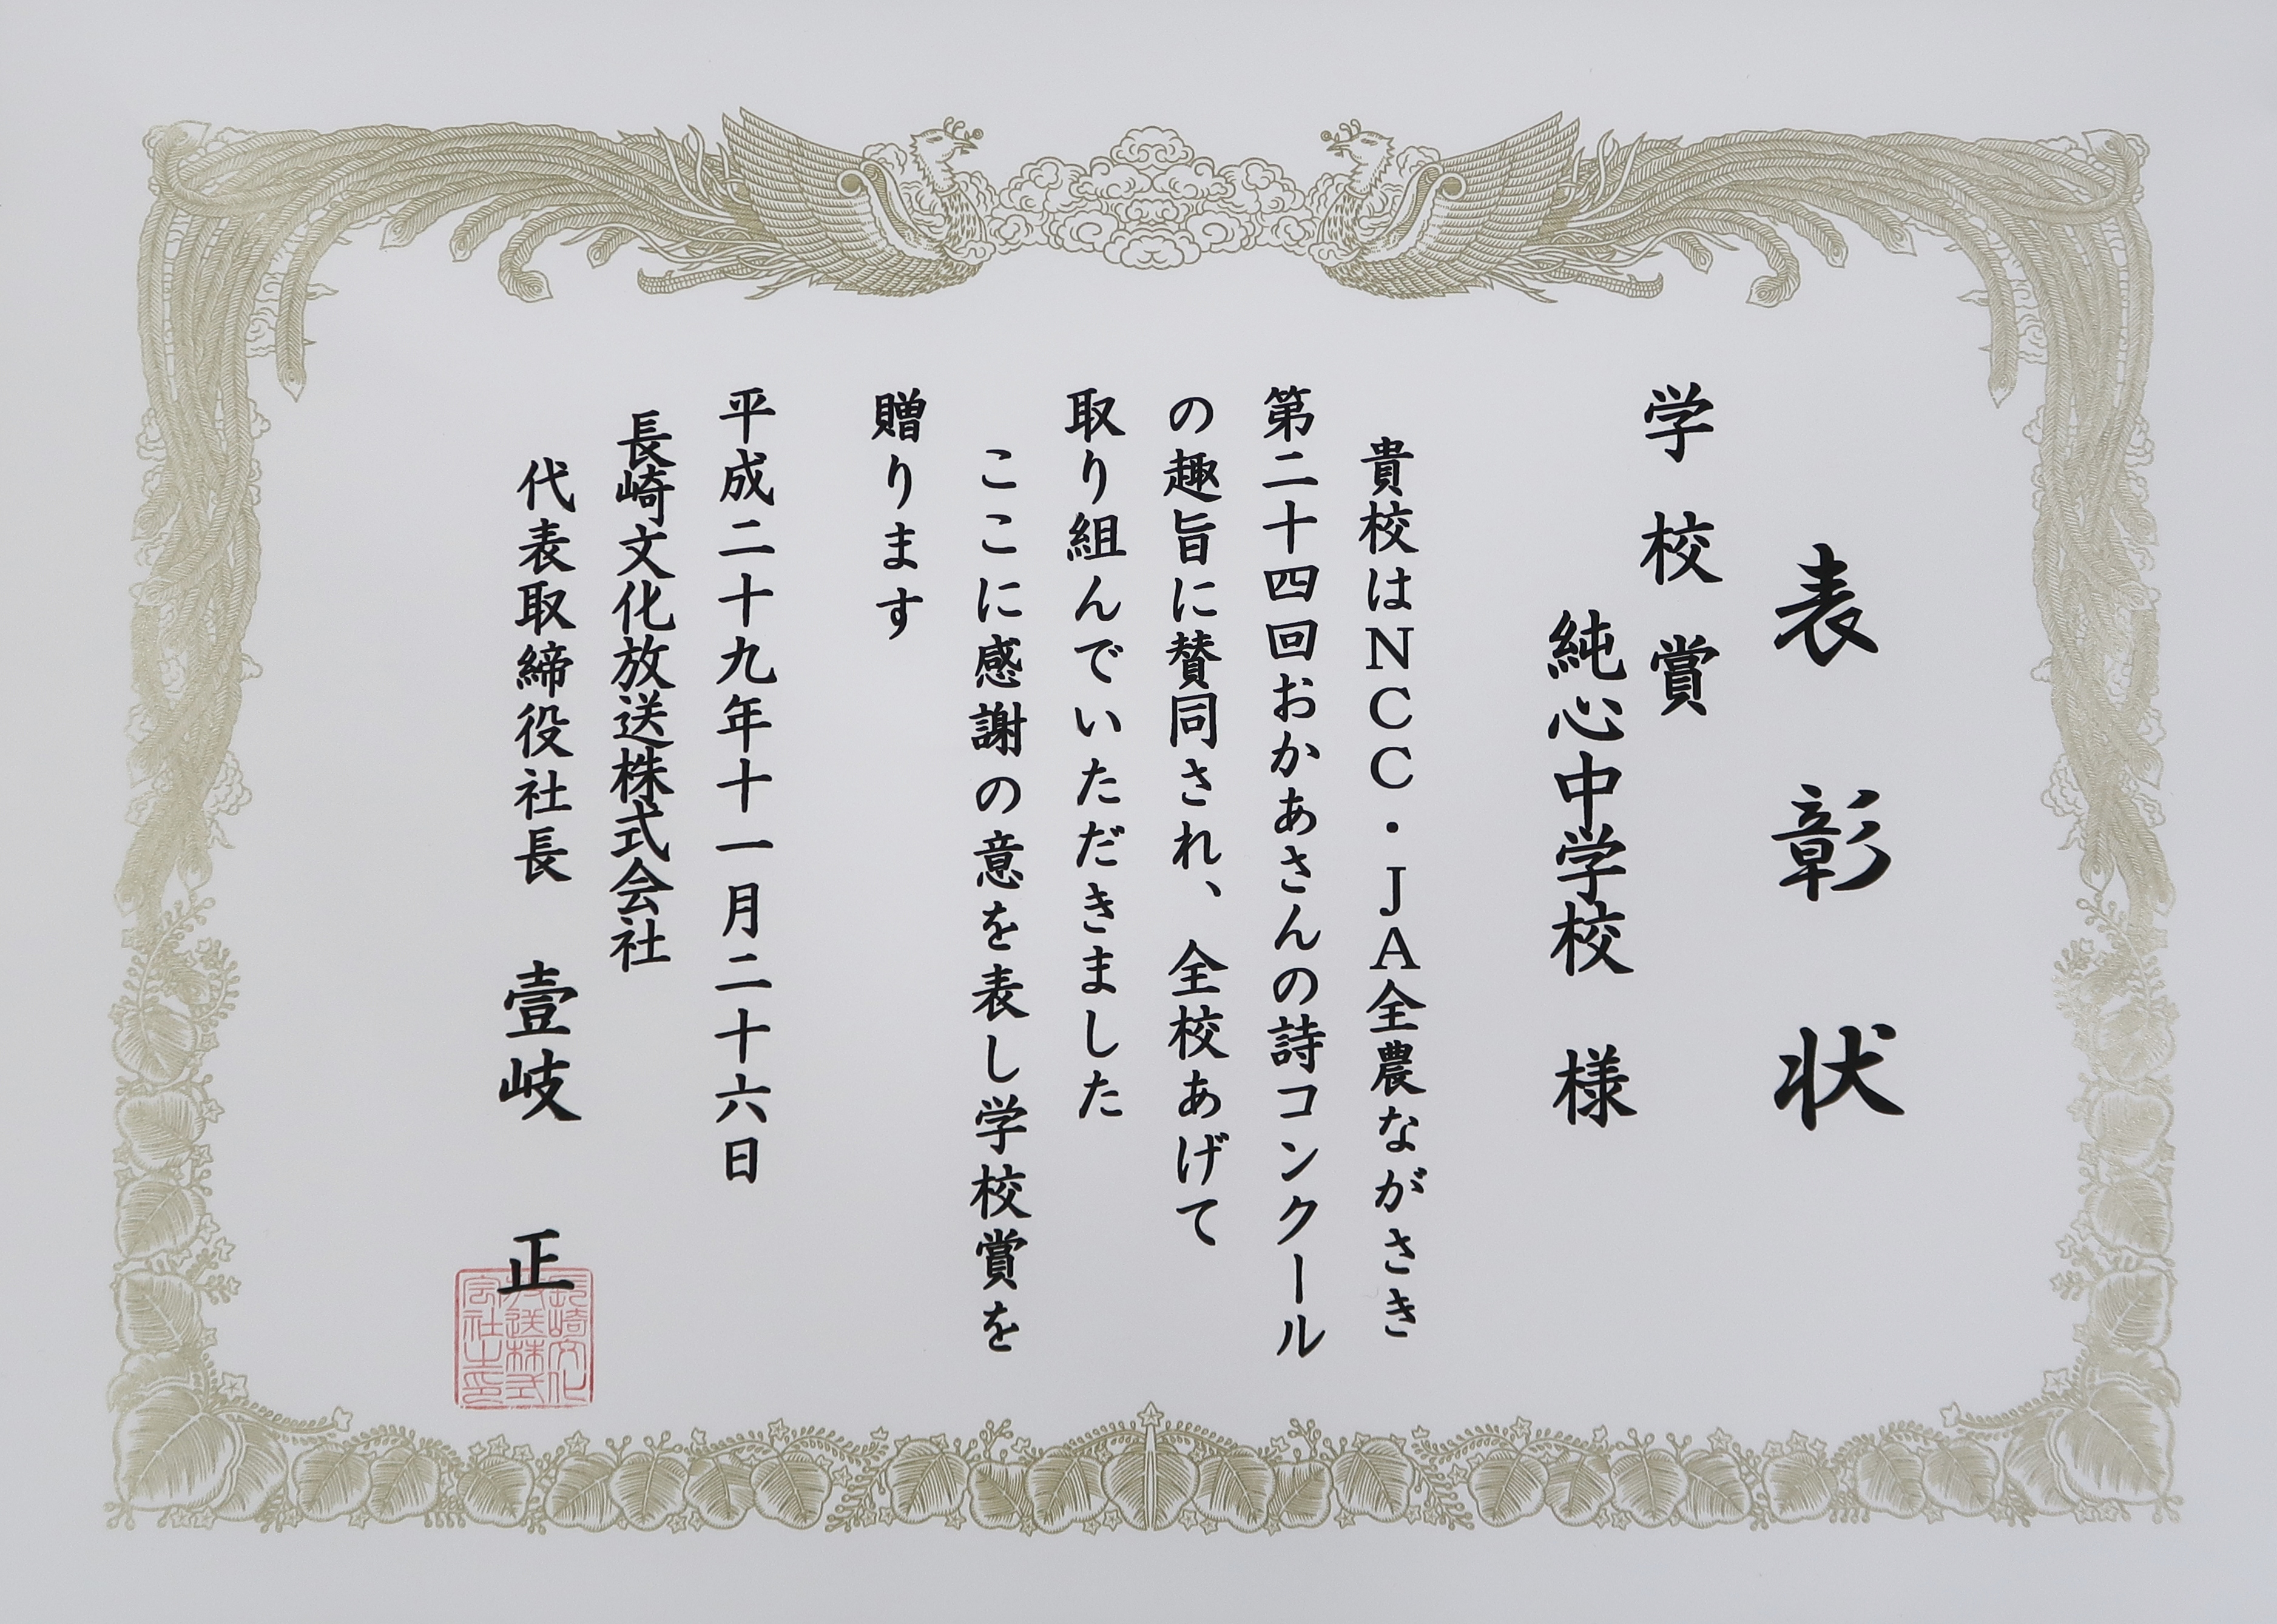 表彰状
学校賞
純心中学校 様
貴校はNCC・JA全農ながさき
第二十四回おかあさんの詩コンクール
の趣旨に賛同され、全校あげて
取り組んでいただきました
ここに感謝の意を表し学校賞を
贈ります
平成二十九年十一月二十六日
長崎文化放送株式会社
代表取締役社長 壹岐 正
長崎文化
放送株式
会社之印